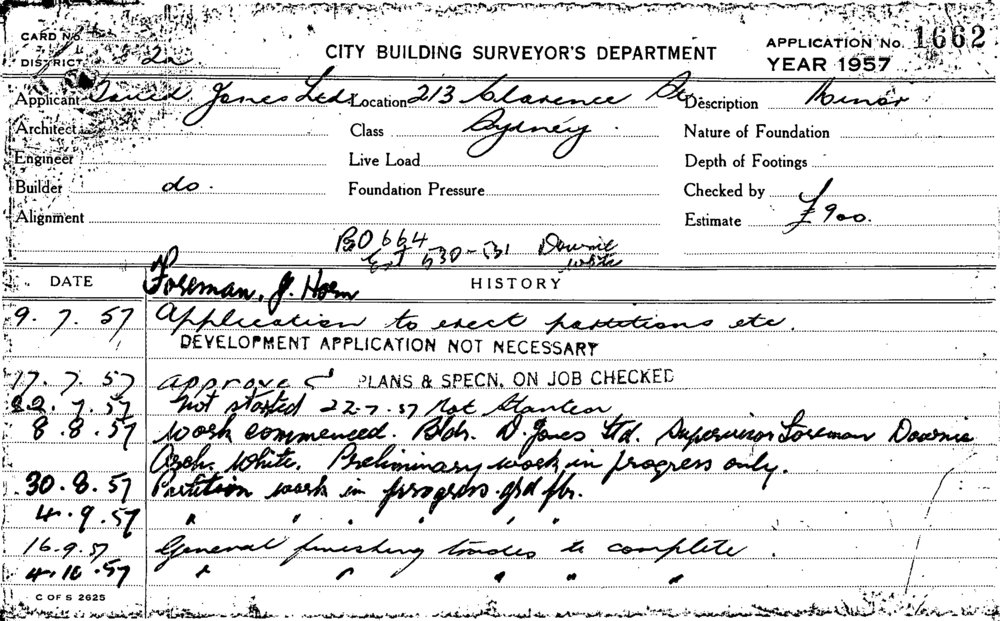 CARD No.
CITY BUILDING SURVEYOR'S DEPARTMENT
APPLICATION No. 1662
DISTRICT 2a
YEAR 1957
Applicant David Jones Ltd. Location 213 Clarence St. Description Minor
Architect Class Sydney. Nature of Foundation
Engineer Live Load Depth of Footings
Builder do. Foundation Pressure Checked by
Alignment Estimate £900.
BO 664 Downie
Ext 530-531 White
Foreman, J. Horn
DATE HISTORY
9. 7. 57 Application to erect partitions etc.
DEVELOPMENT APPLICATION NOT NECESSARY
17. 7. 57 approved PLANS & SPECN. ON JOB CHECKED
22. 7. 57 Not started 22-7-57 Not Started
8. 8. 57 Work commenced. Bldr. D. Jones Ltd. Supervisor Foreman Downie
White. Preliminary work in progress only.
30. 8. 57 Partition work in progress grd flr.
4. 9. 57 " " " " " "
16. 9. 57 General finishing trades to complete.
4. 10. 57 " " " " "
C OF S 2625